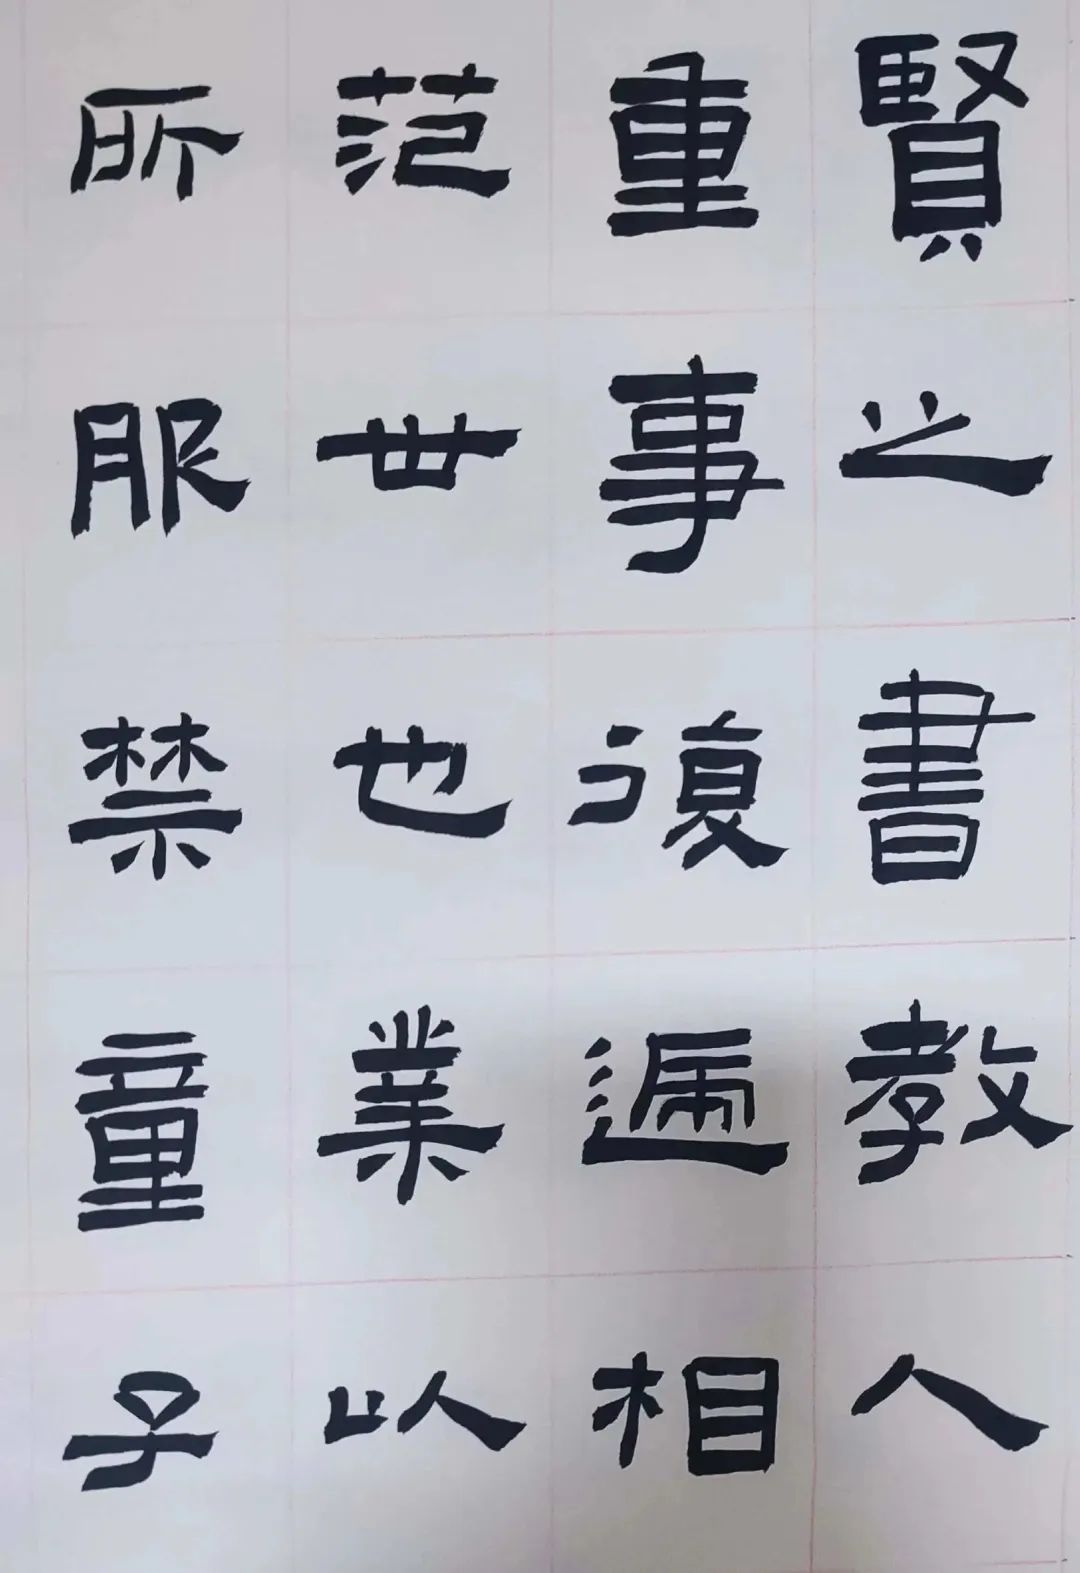 賢之書教人
重事復遍相
范世也業以
所服禁童子